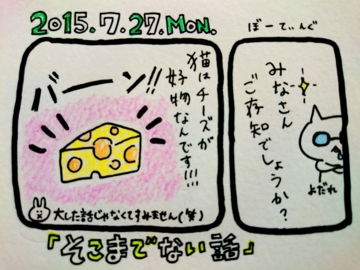 2015.7.27.MON.
ぼーてぃんぐ
みなさん
ご存知でしょうか?
よだれ
バーン!!
猫はチーズが
好物なんです!!!
大した話じゃなくてすみません(笑)
「そこまでない話」